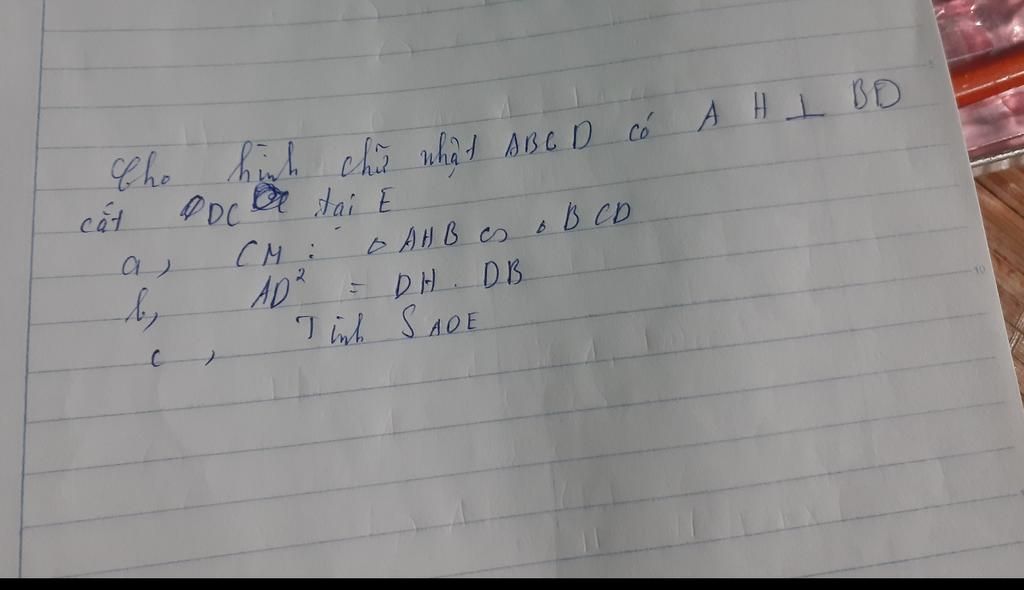 Cho hình chữ nhật ABCD có AH ⊥ BD
cắt DC tại E
a, CM: △AHB ∽ △BCD
b, AD² = DH . DB
c, Tính SADE